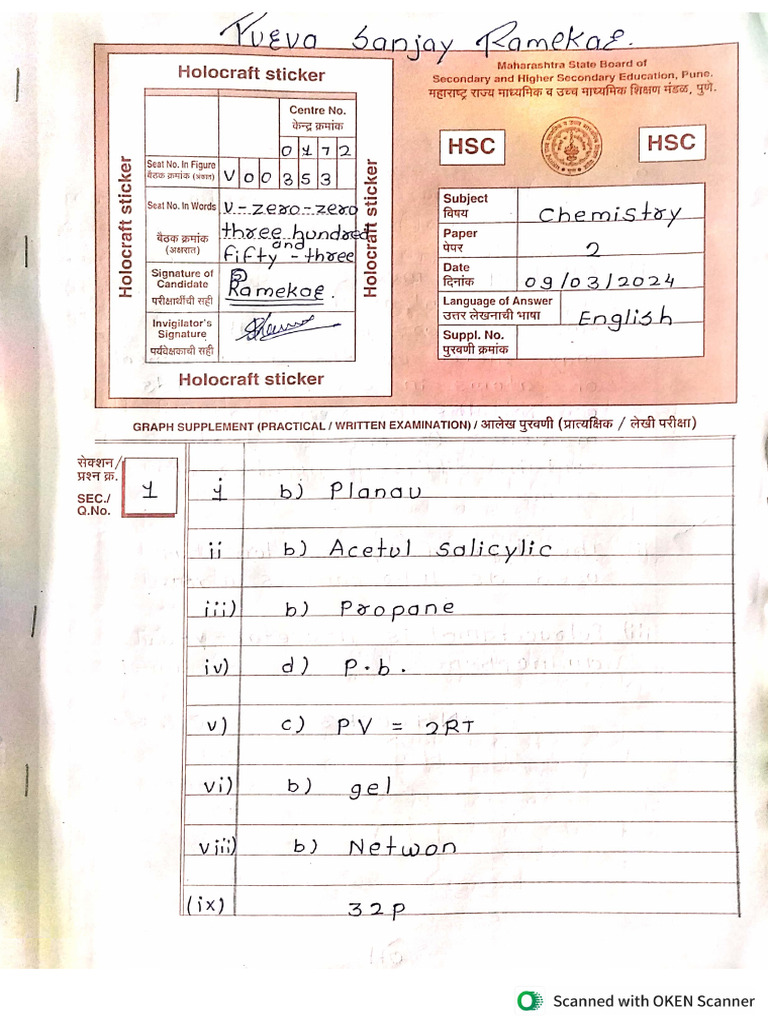 Sanjay Ramekae.
Holocraft sticker
Maharashtra State Board of
Secondary and Higher Secondary Education, Pune.
महाराष्ट्र राज्य माध्यमिक व उच्च माध्यमिक शिक्षण मंडळ, पुणे.
HSC
HSC
Holocraft sticker
Holocraft sticker
Centre No.
केन्द्र क्रमांक
0172
Seat No. In Figure
बैठक क्रमांक (अंकात)
V00353
Seat No. In Words
बैठक क्रमांक
(अक्षरात)
V-zero-zero
three hundred
and
fifty-three
Signature of
Candidate
परीक्षार्थीची सही
Ramekae.
Invigilator's
Signature
पर्यवेक्षकाची सही
Holocraft sticker
Subject
विषय
Chemistry
Paper
पेपर
2
Date
दिनांक
09/03/2024
Language of Answer
उत्तर लेखनाची भाषा
English
Suppl. No.
पुरवणी क्रमांक
GRAPH SUPPLEMENT (PRACTICAL / WRITTEN EXAMINATION) / आलेख पुरवणी (प्रात्यक्षिक / लेखी परीक्षा)
सेक्शन/
प्रश्न क्र.
SEC./
Q.No.
1
i b) Planau
ii b) Acetul Salicylic
iii) b) Propane
iv) d) P.b.
v) c) PV = 2RT
vi) b) gel
viii) b) Netwon
(ix) 32p
Scanned with OKEN Scanner